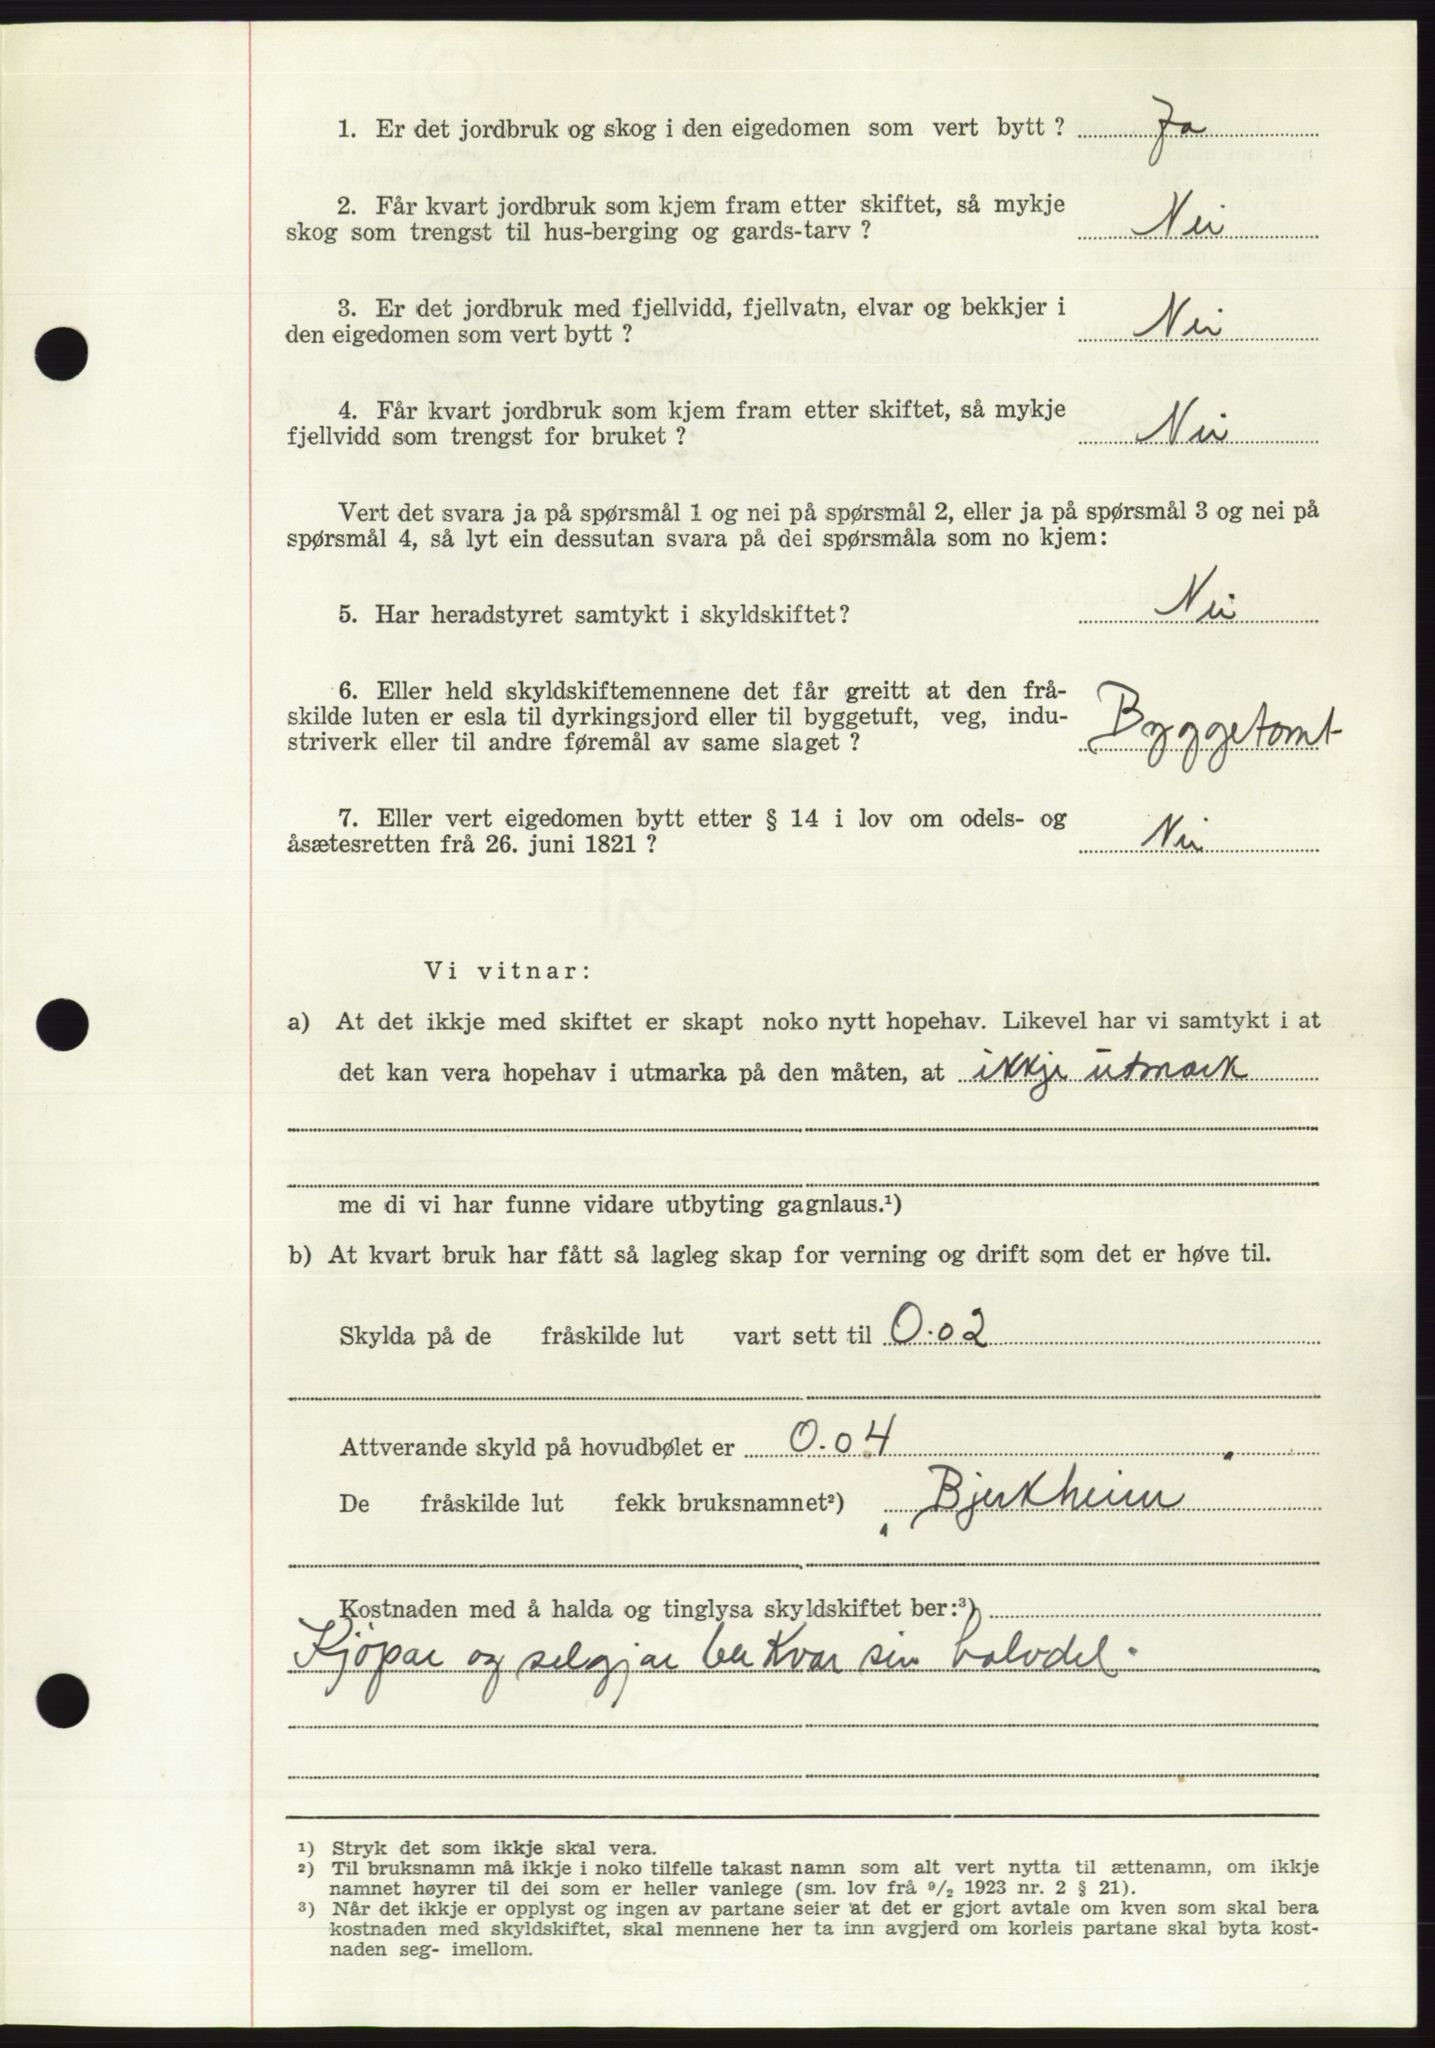 1. Er det jordbruk og skog i den eigedomen som vert bytt ? Ja
2. Får kvart jordbruk som kjem fram etter skiftet, så mykje
skog som trengst til hus-berging og gards-tarv ? Nei
3. Er det jordbruk med fjellvidd, fjellvatn, elvar og bekkjer i
den eigedomen som vert bytt ? Nei
4. Får kvart jordbruk som kjem fram etter skiftet, så mykje
fjellvidd som trengst for bruket ? Nei
Vert det svara ja på spørsmål 1 og nei på spørsmål 2, eller ja på spørsmål 3 og nei på
spørsmål 4, så lyt ein dessutan svara på dei spørsmåla som no kjem:
5. Har heradstyret samtykt i skyldskiftet? Nei
6. Eller held skyldskiftemennene det får greitt at den frå-
skilde luten er esla til dyrkingsjord eller til byggetuft, veg, indu-
striverk eller til andre føremål av same slaget ? Byggetomt
7. Eller vert eigedomen bytt etter § 14 i lov om odels- og
åsætesretten frå 26. juni 1821 ? Nei
Vi vitnar:
a) At det ikkje med skiftet er skapt noko nytt hopehav. Likevel har vi samtykt i at
det kan vera hopehav i utmarka på den måten, at ikkje utmark
me di vi har funne vidare utbyting gagnlaus.¹)
b) At kvart bruk har fått så lagleg skap for verning og drift som det er høve til.
Skylda på de fråskilde lut vart sett til 0.02
Attverande skyld på hovudbølet er 0.04
De fråskilde lut fekk bruksnamnet²) Bjerkheim
Kostnaden med å halda og tinglysa skyldskiftet ber:³)
Kjöpar og selgjar ber kvar sin halvdel.
¹) Stryk det som ikkje skal vera.
²) Til bruksnamn må ikkje i noko tilfelle takast namn som alt vert nytta til ættenamn, om ikkje
namnet høyrer til dei som er heller vanlege (sm. lov frå ⁹/₂ 1923 nr. 2 § 21).
³) Når det ikkje er opplyst og ingen av partane seier at det er gjort avtale om kven som skal bera
kostnaden med skyldskiftet, skal mennene her ta inn avgjerd om korleis partane skal byta kost-
naden seg- imellom.